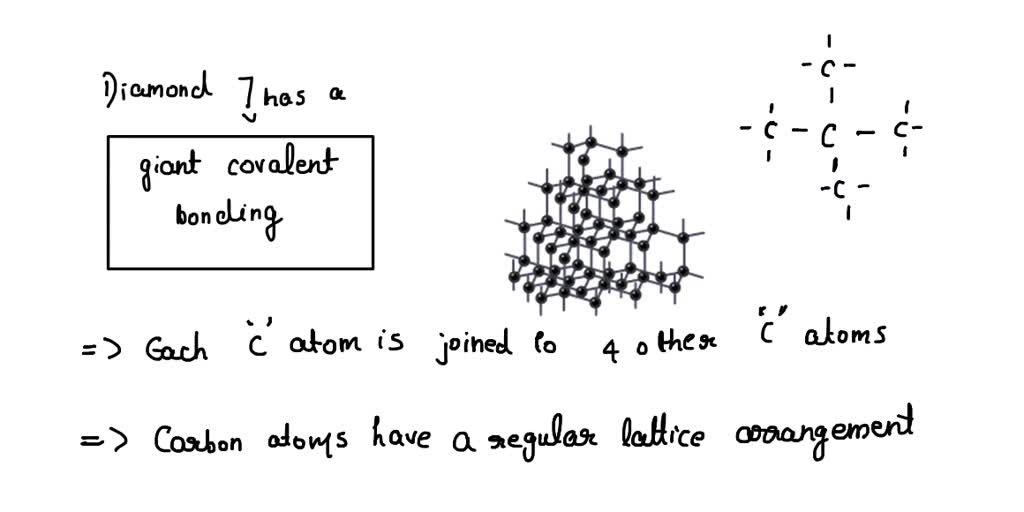 Diamond has a
giant covalent
bonding
C
C C C
C
=> Each "C" atom is joined to 4 other "C" atoms
=> Carbon atoms have a regular lattice arrangement